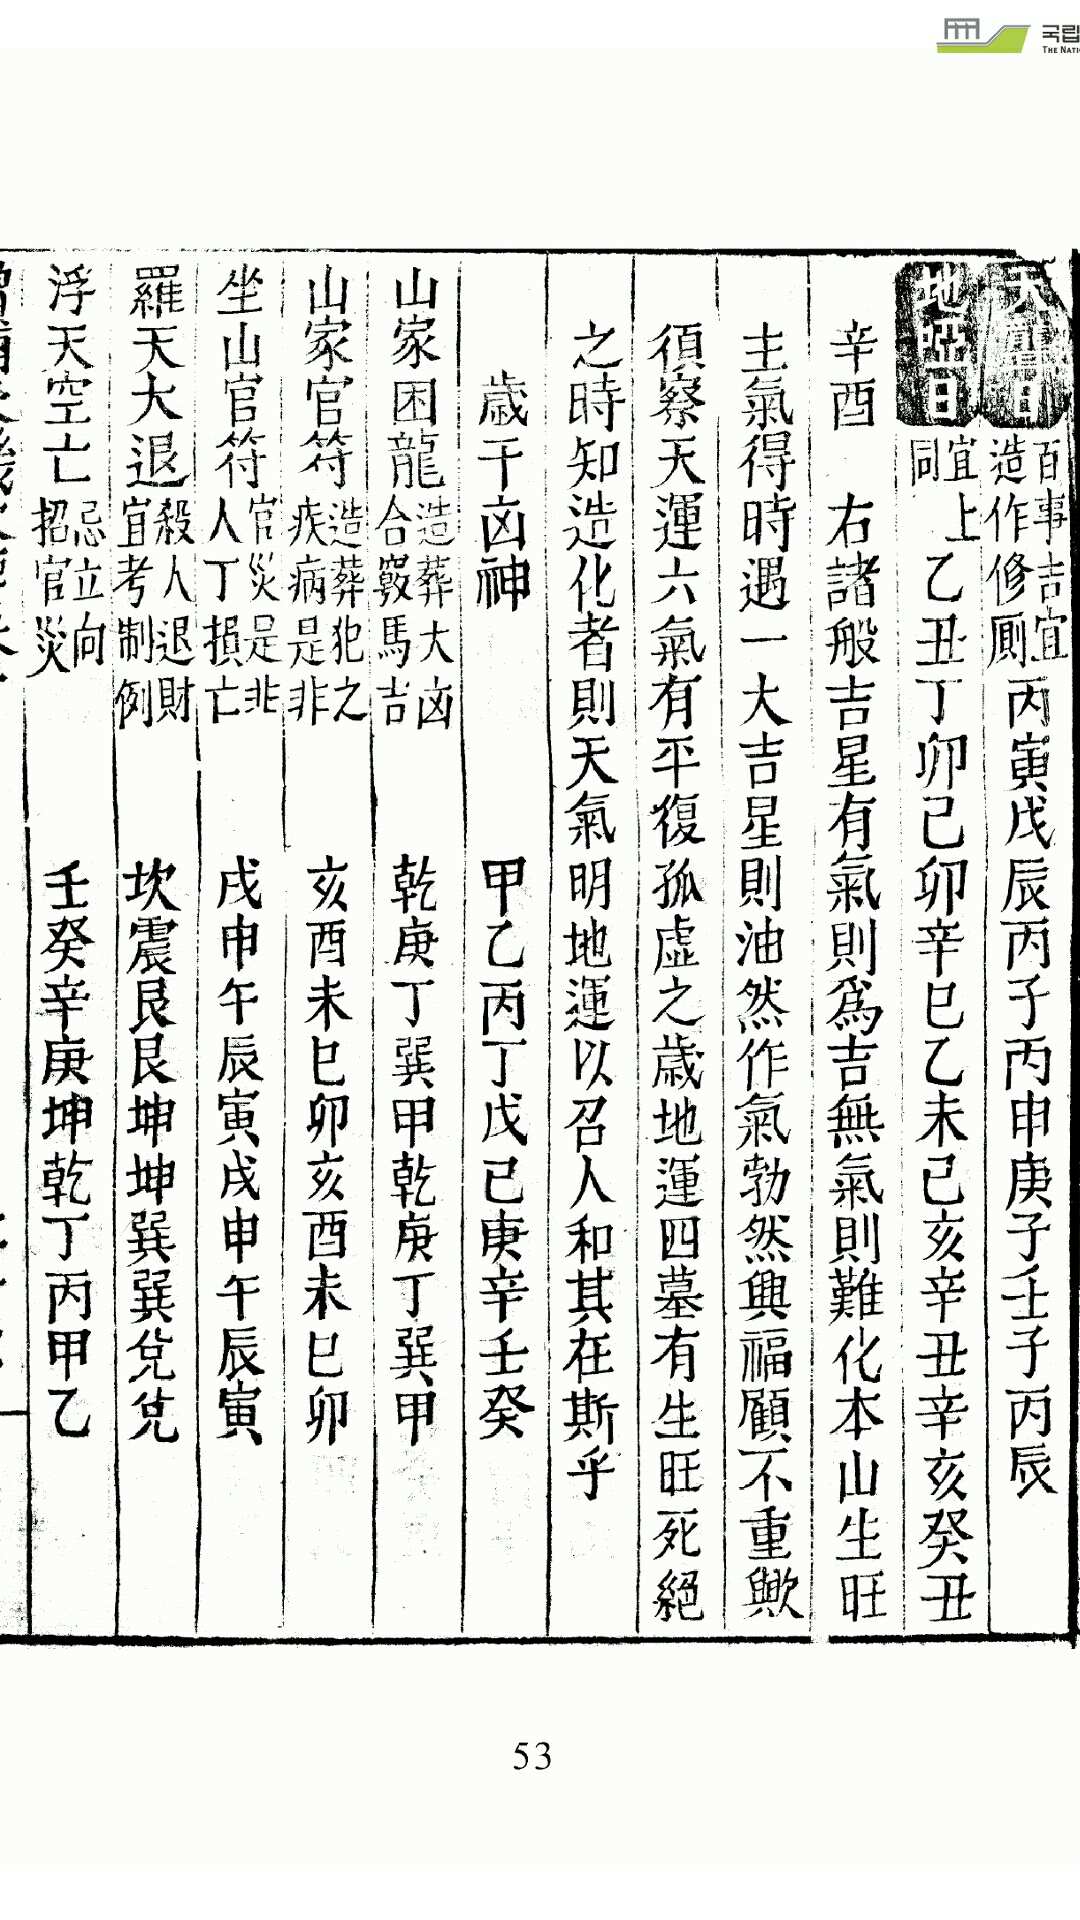 국립
THE NATI
天聾日 百事吉宜造作修厠 丙寅戊辰丙子丙申庚子壬子丙辰
地啞日 宜上同 乙丑丁卯己卯辛巳乙未己亥辛丑辛亥癸丑
辛酉 右諸般吉星有氣則爲吉無氣則難化本山生旺
主氣得時遇一大吉星則油然作氣勃然興福顧不重歟
須察天運六氣有平復孤虛之歲地運四墓有生旺死絕
之時知造化者則天氣明地運以召人和其在斯乎
歲干凶神 甲乙丙丁戊己庚辛壬癸
山家困龍 造葬大凶合竅馬吉 乾庚丁巽甲乾庚丁巽甲
山家官符 造葬犯之疾病是非 亥酉未巳卯亥酉未巳卯
坐山官符 官災是非人丁損亡 戌申午辰寅戌申午辰寅
羅天大退 殺人退財宜考制例 坎震艮艮坤坤巽巽兌兌
浮天空亡 忌立向招官災 壬癸辛庚坤乾丁丙甲乙
53